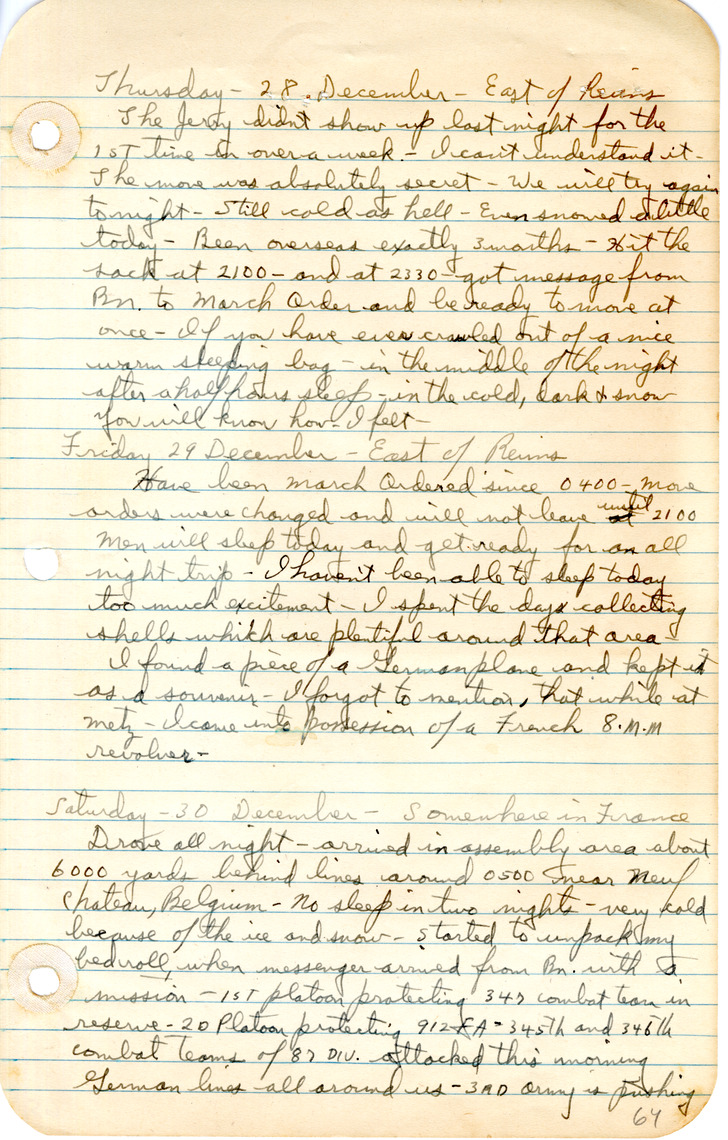 Thursday - 28. December - East of Reims
The Jerry didnt show up last night for the
1ST time in over a week - I can't understand it -
The move was absolutely secret - We will try again
tonight - Still cold as hell - Even snowed a little
today - Been overseas exactly 3 months - Hit the
sack at 2100 - and at 2330 - got message from
Bn. to March Order and be ready to move at
once - If you have ever crawled out of a nice
warm sleeping bag - in the middle of the night
after a half hours sleep - in the cold, dark & snow
You will know how I felt -
Friday 29 December - East of Reims
Have been March Ordered since 0400 - move
orders were changed and will not leave until 2100
Men will sleep today and get ready for an all
night trip - I haven't been able to sleep today
too much excitement - I spent the days collecting
shells which are plentiful around that area -
I found a piece of a German plane and kept it
as a souvenir - I forgot to mention, that while at
Metz - I came into possession of a French 8.M.M
revolver -
Saturday - 30 December - Somewhere in France
Drove all night - arrived in assembly area about
6000 yards behind lines around 0500 near Neuf
Chateau, Belgium - No sleep in two nights - very cold
because of the ice and snow - started to unpack my
bedroll, when messenger arrived from Bn. with a
mission - 1ST platoon protecting 347 combat team in
reserve - 2D Platoon protecting 912 FA - 345th and 346th
combat teams of 87 DIV. attacked this morning
German lines all around us - 3RD Army is pushing
64